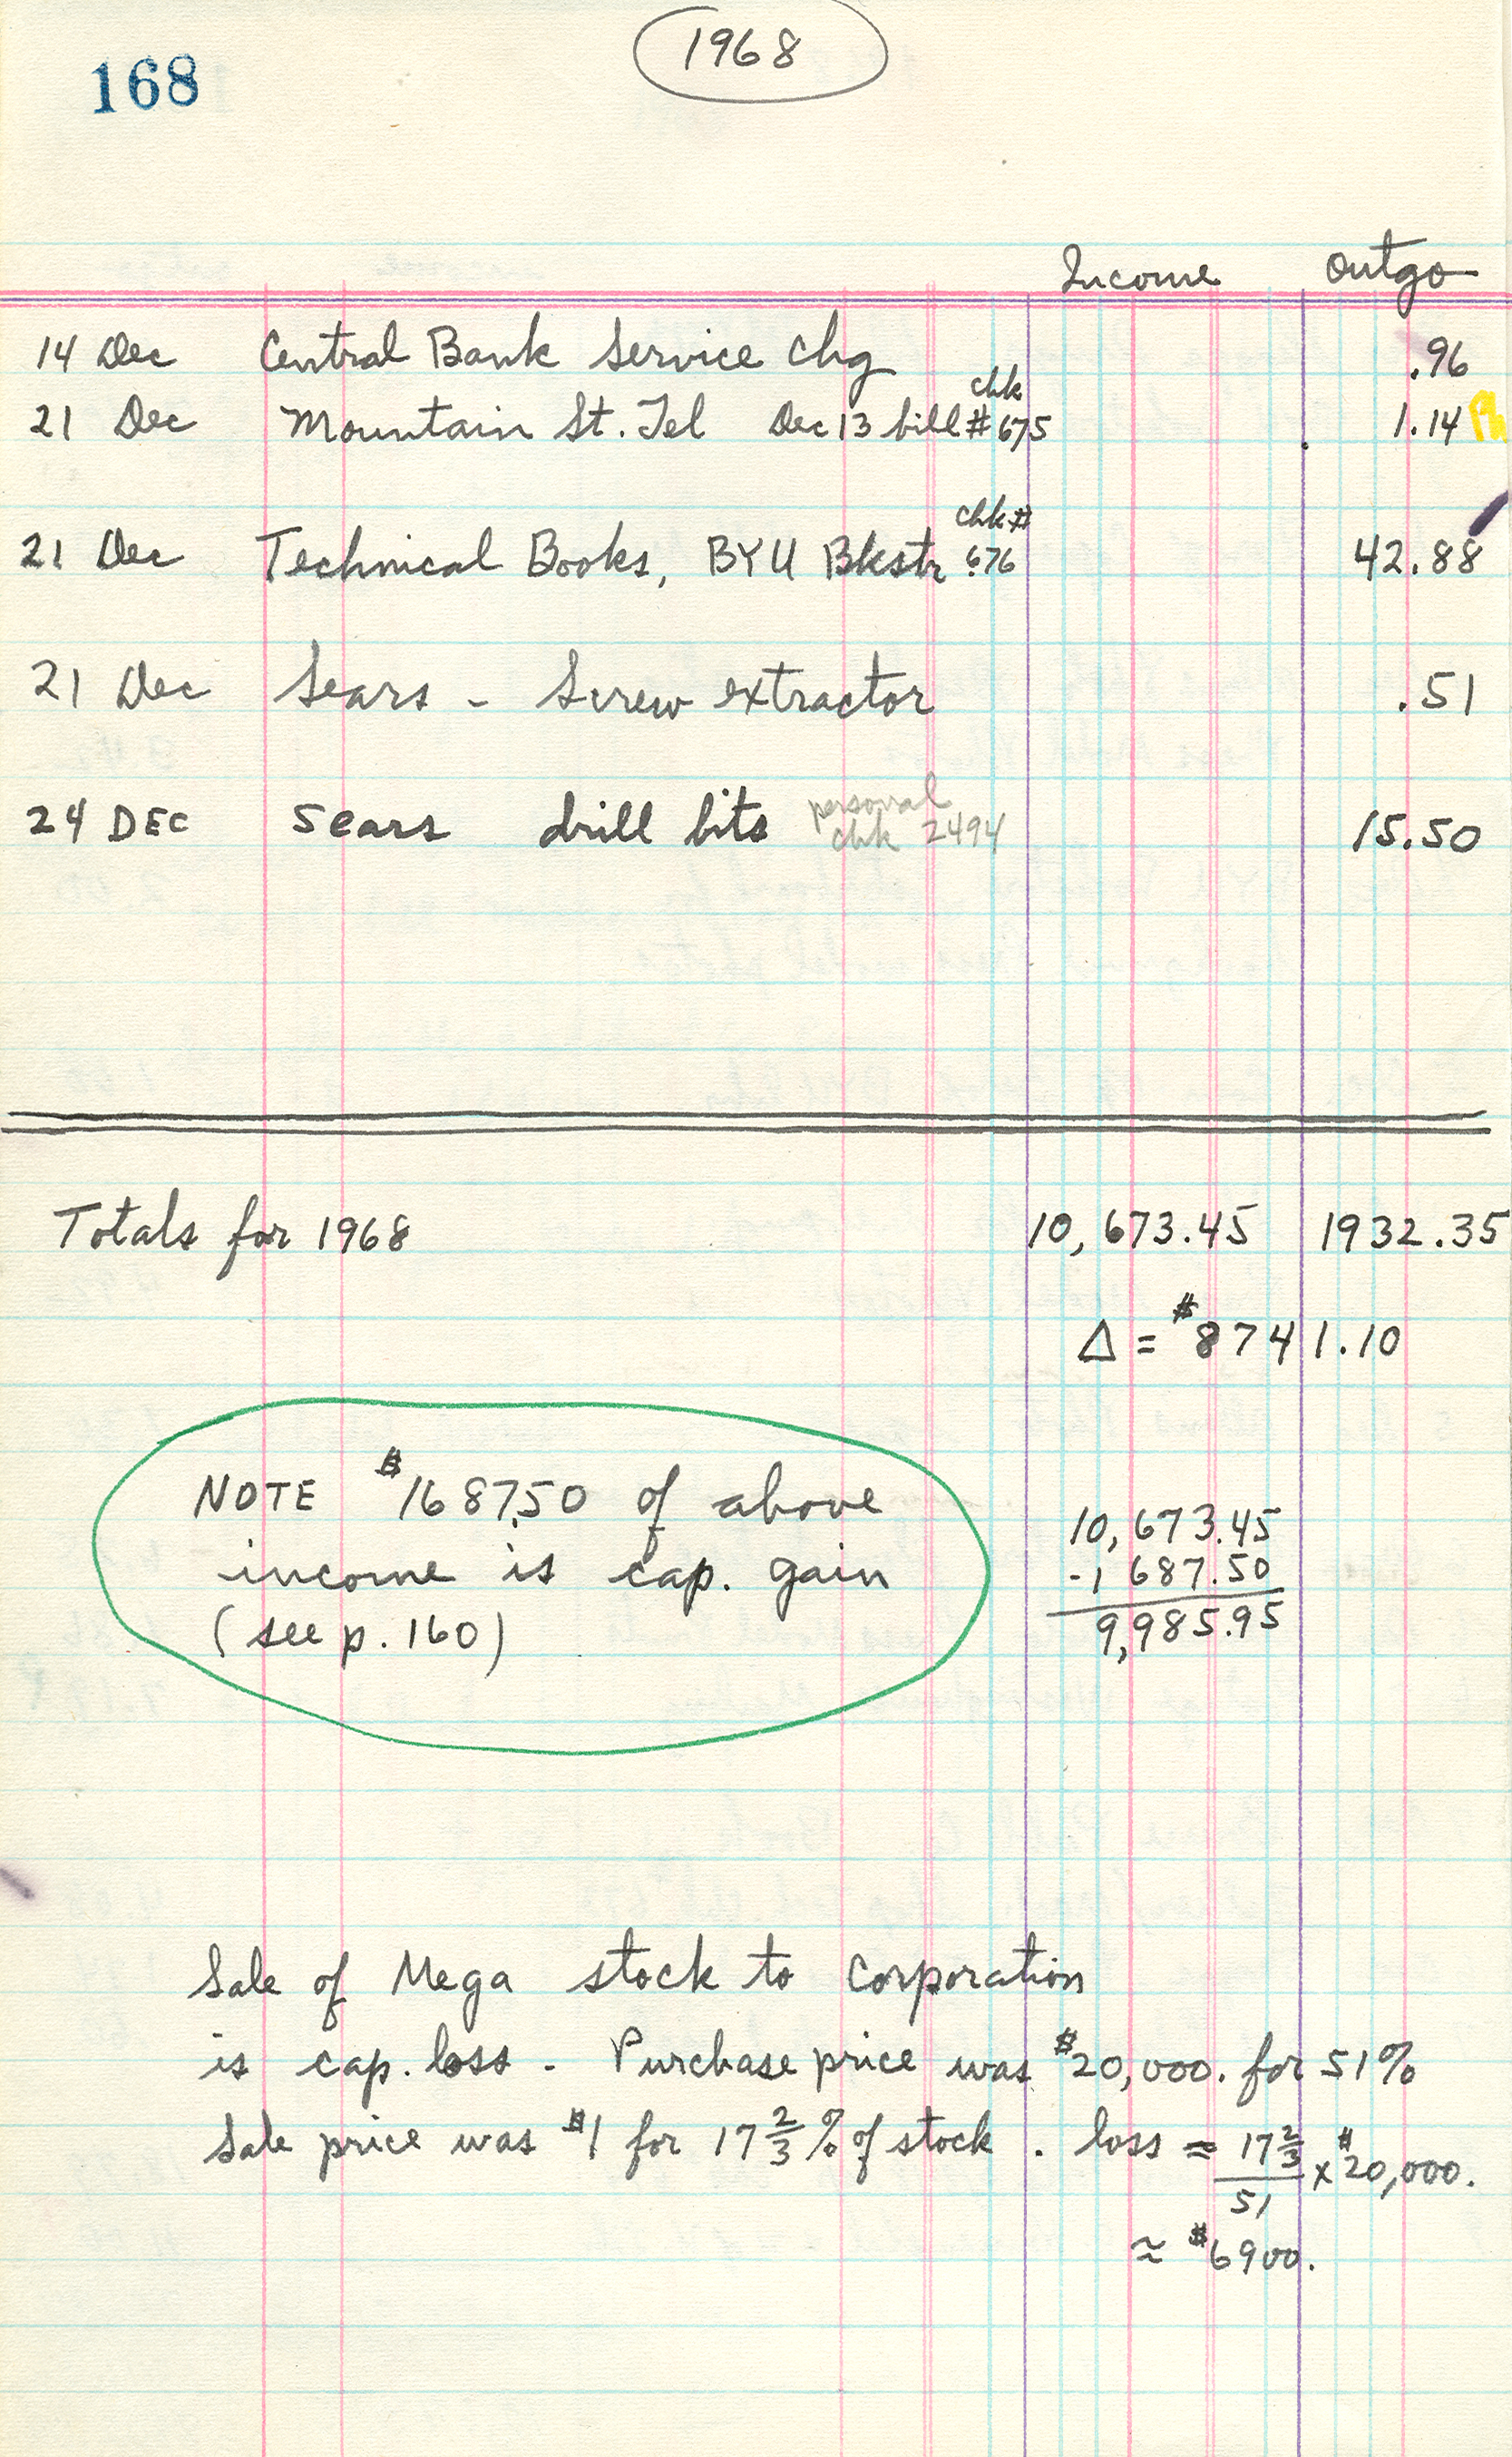 168
1968
Income Outgo
14 Dec Central Bank Service Chg .96
21 Dec Mountain St. Tel Dec 13 bill chk #675 1.14
21 Dec Technical Books, BYU Bkstr chk# 676 42.88
21 Dec Sears - Screw extractor .51
24 DEC Sears drill bits personal chk 2494 15.50
Totals for 1968 10,673.45 1932.35
Δ = $8741.10
NOTE $1687.50 of above
income is cap. gain
(see p. 160)
10,673.45
-1 687.50
9,985.95
Sale of Mega stock to Corporation
is cap. loss - Purchase price was $20,000. for 51%
Sale price was $1 for 17 2/3 % of stock. loss ≈ 17 2/3 / 51 x $20,000.
≈ $6900.